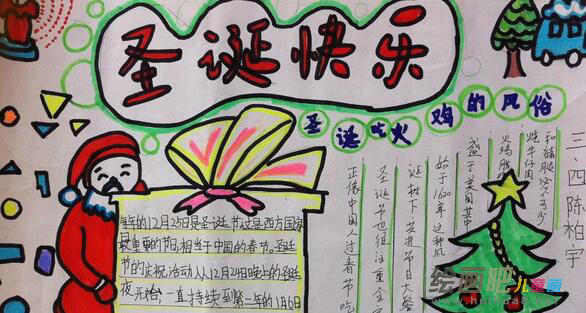 圣诞快乐
圣诞吃火鸡的风俗
每年的12月25日是圣诞节这是西方国家
最重要的节日,相当于中国的春节。圣诞
节的庆祝活动从12月24日晚上的圣诞
夜开始,一直持续到第二年的1月6日
正像中国人过春节吃
圣诞节也很注重全家
诞树下共进节日大餐
始于1620年这种风
盛于美国其中
火鸡
烤牛仔肉
和猪腿必不可少
二四陈柏宇
绘画吧
儿童画